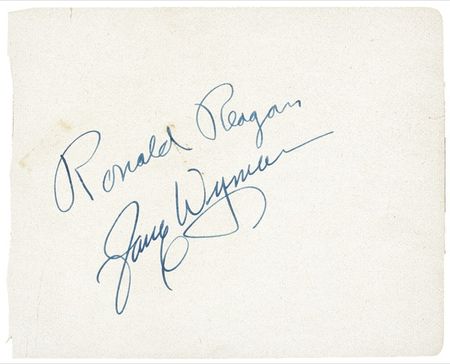 Ronald Reagan
Jane Wyman